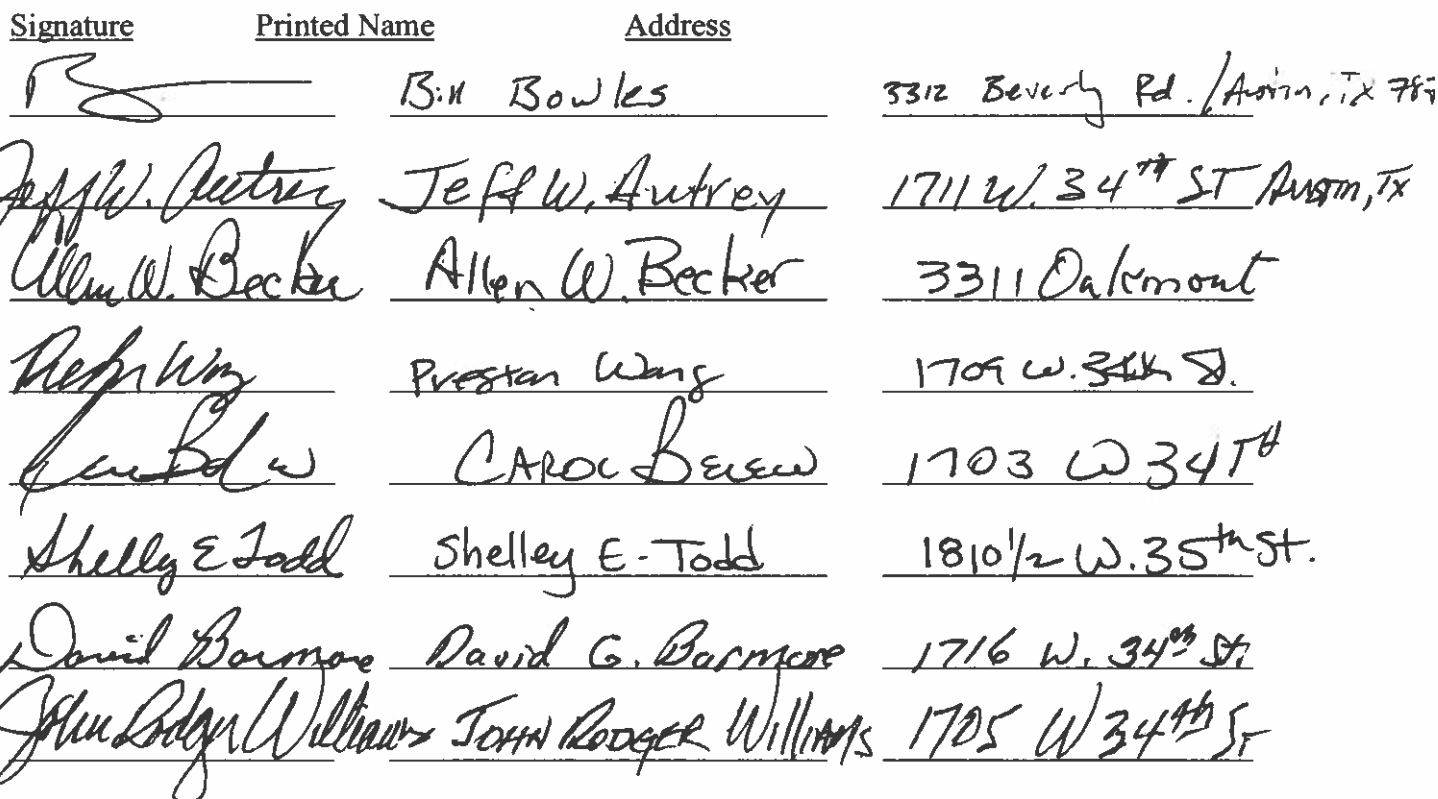 Signature Printed Name Address
Bill Bowles 3312 Beverly Rd. / Austin, Tx
Jeff W. Autrey Jeff W. Autrey 1711 W. 34TH ST Austin, Tx
Allen W. Becker Allen W. Becker 3311 Oakmont
Preston Wang 1709 W. 34th St.
CAROL BELEW 1703 W 34TH
Shelley E Todd Shelley E - Todd 1810 1/2 W. 35th St.
David Barmore David G. Barmore 1716 W. 34th St.
John Rodger Williams JOHN RODGER WilliAMS 1705 W 34th ST